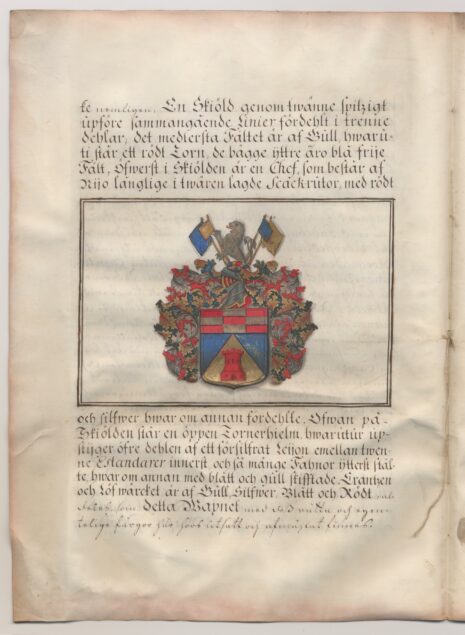 te nemligen. En Skiöld genom twänne spitzigt
üpföre sammangående Linier fördehlt i trenne
dehlar, det medlersta Fältet är af Gull, hwaru-
ti står ett rödt Torn, de bägge yttre äro blå frije
Fält, Ofwerst i Skiölden är en Chef, som består af
Nijo länglige i twären lagde Scackrutor, med rödt
och silfwer hwar om annan fördehlte. Ofwan på
Skiölden står en öppen Tornerhielm, hwarutur üp-
stijger öfre dehlen af ett försilfrat Leijon emellan twen-
ne Estandarer innerst, och så månge Fahnor ytterst stäl-
te, hwar om annan med blått och gull stifftade. Crantzen
och Löfwärcket är af Gull, Silfwer, Blått och Rödt,
detta Wapnet med dess och egen-
telige färgor här hoos uthsatt och afmåhlat finnes.